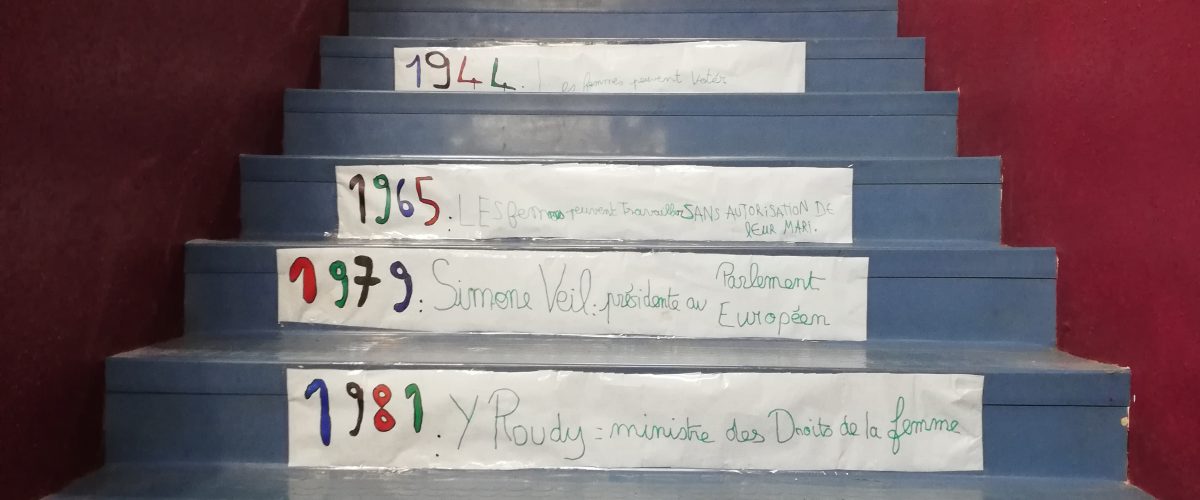 1944. Les femmes peuvent Voter
1965. LES femmes peuvent travailler SANS AUTORISATION DE
lEUR MARI.
1979. Simone Veil. présidente au Parlement
Européen
1981. Y Roudy = ministre des Droits de la femme